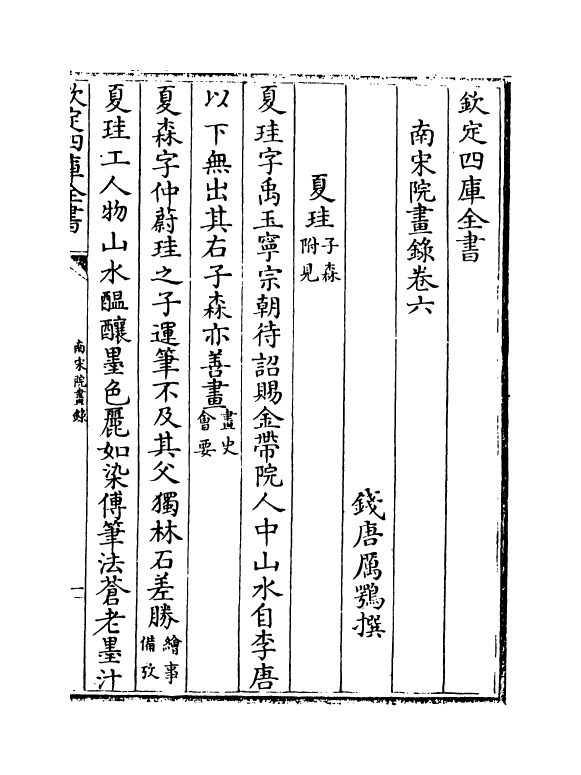 欽定四庫全書
南宋院畫錄卷六
錢唐厲鶚撰
夏珪子森附見
夏珪字禹玉寧宗朝待詔賜金帶院人中山水自李唐
以下無出其右子森亦善畫畫史會要
夏森字仲蔚珪之子運筆不及其父獨林石差勝繪事備攷
夏珪工人物山水醖釀墨色麗如染傅筆法蒼老墨汁
欽定四庫全書
南宋院畫錄
一